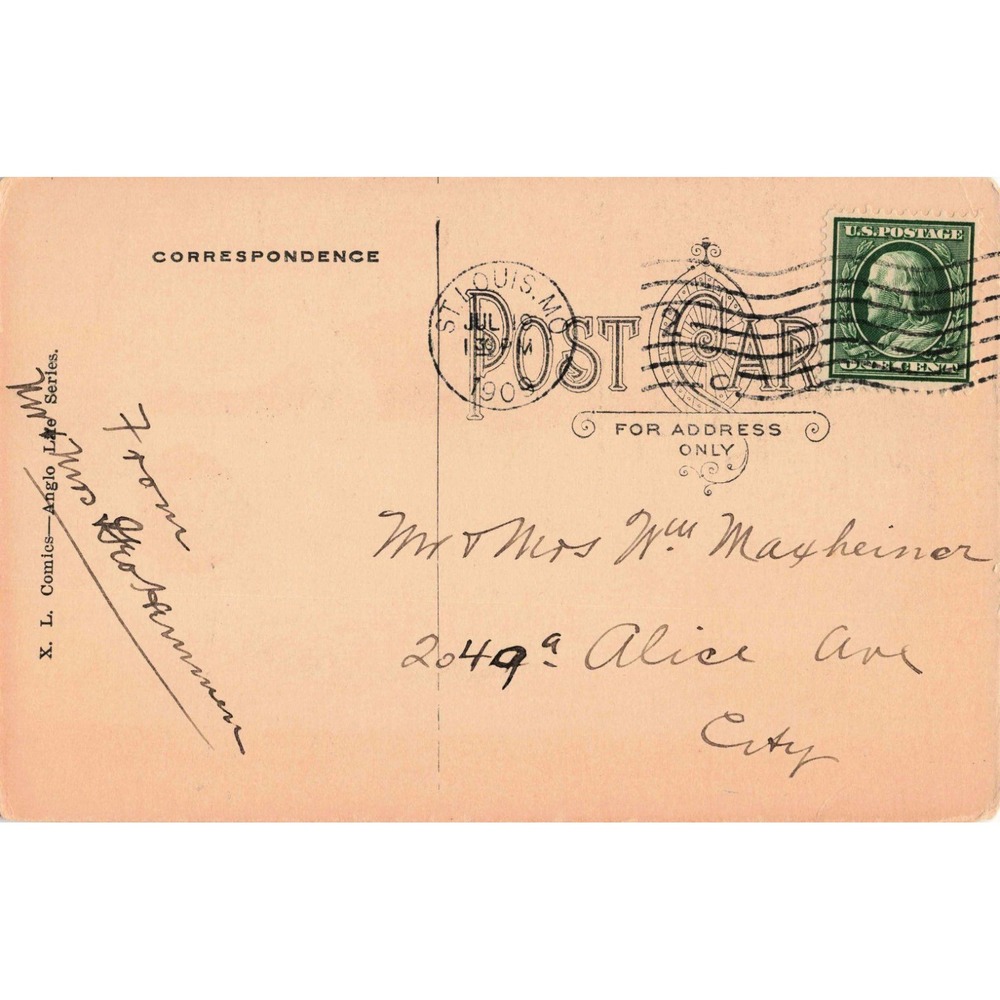 CORRESPONDENCE
ST. LOUIS. MO
JUL 8
1909
POST CARD
FOR ADDRESS
ONLY
U.S. POSTAGE
ONE CENT
X. L. Comics—Anglo Life Series.
From
Mr & Mrs Wm Maxheiner
2049a Alice Ave
City